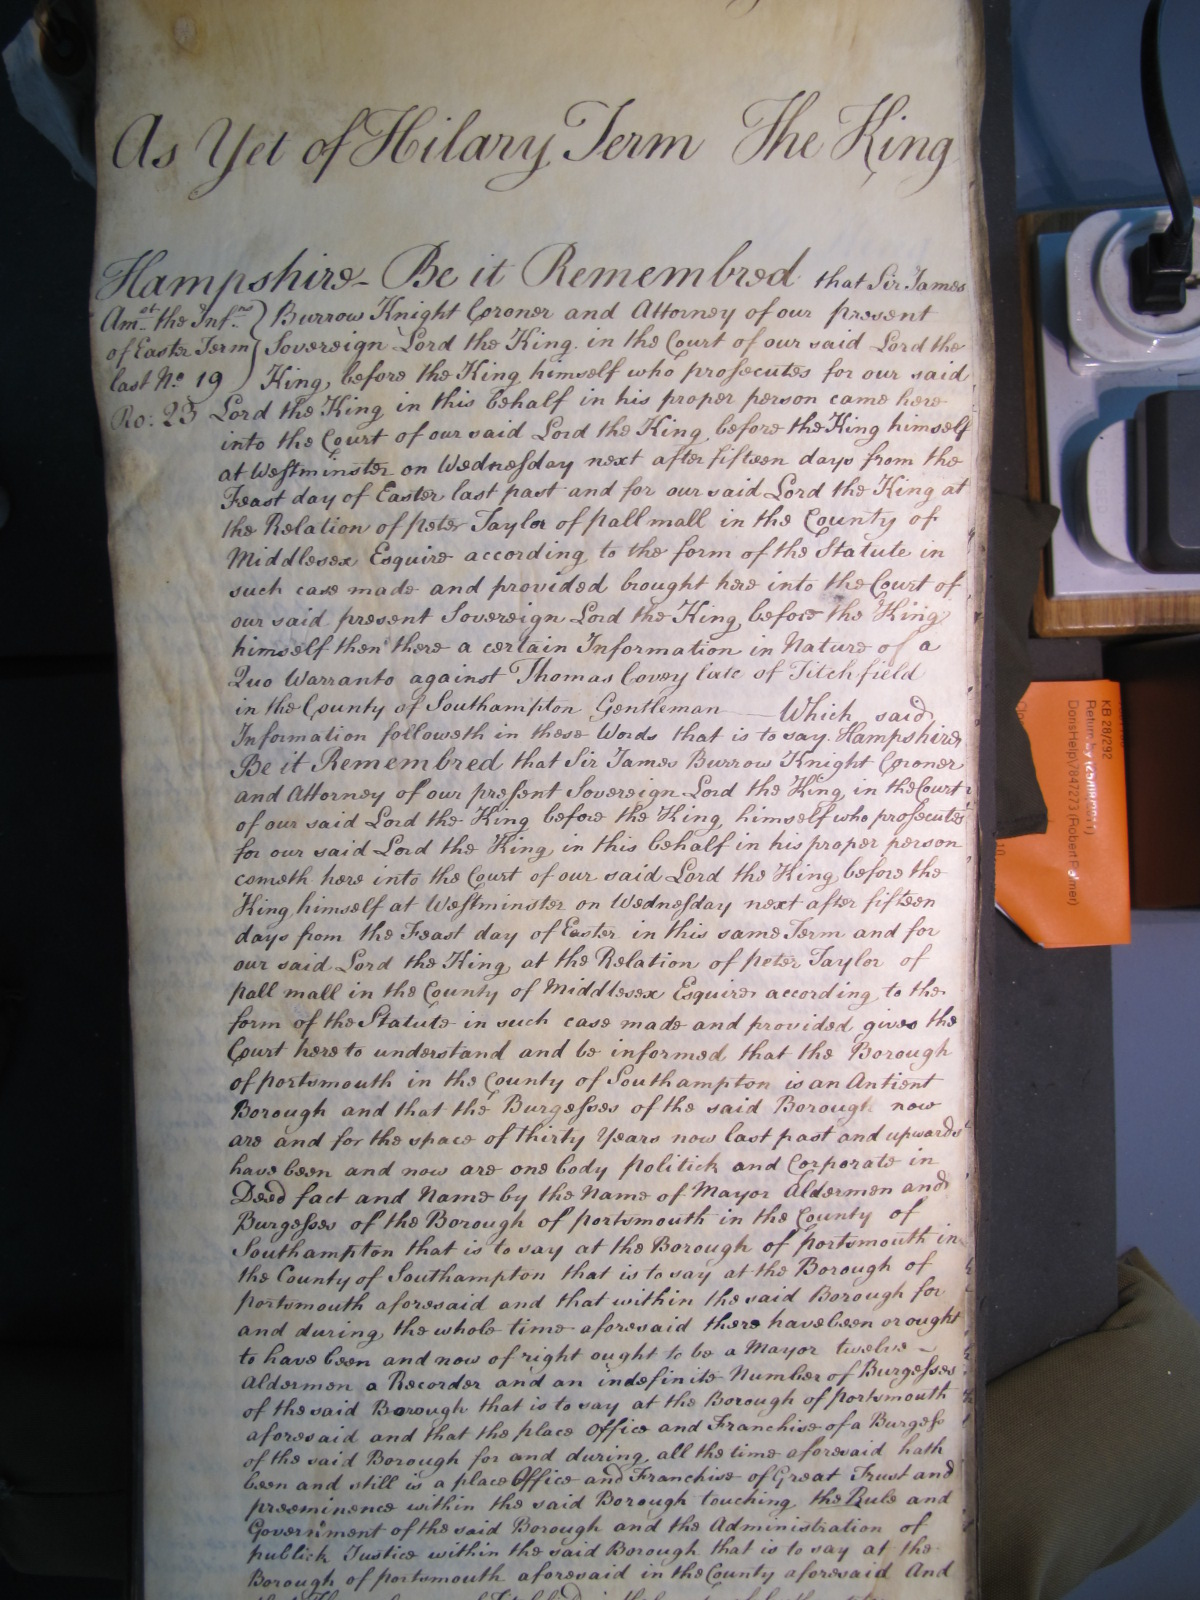 As Yet of Hilary Term The King
Hampshire - Be it Remembred that Sir James
Amst. the Infns. of Easter Term last No. 19
Ro: 23
Burrow Knight Coroner and Attorney of our present
Sovereign Lord the King in the Court of our said Lord the
King before the King himself who prosecutes for our said
Lord the King in this behalf in his proper person came here
into the Court of our said Lord the King before the King himself
at Westminster on Wednesday next after fifteen days from the
Feast day of Easter last past and for our said Lord the King at
the Relation of peter Taylor of pall mall in the County of
Middlesex Esquire according to the form of the Statute in
such case made and provided brought here into the Court of
our said present Sovereign Lord the King before the King
himself then there a certain Information in Nature of a
Quo Warranto against Thomas Covey late of Titchfield
in the County of Southampton Gentleman Which said
Information followeth in these Words that is to say Hampshire
Be it Remembred that Sir James Burrow Knight Coroner
and Attorney of our present Sovereign Lord the King in the Court
of our said Lord the King before the King himself who prosecutes
for our said Lord the King in this behalf in his proper person
cometh here into the Court of our said Lord the King before the
King himself at Westminster on Wednesday next after fifteen
days from the Feast day of Easter in this same Term and for
our said Lord the King at the Relation of peter Taylor of
pall mall in the County of Middlesex Esquire according to the
form of the Statute in such case made and provided gives the
Court here to understand and be informed that the Borough
of portsmouth in the County of Southampton is an Antient
Borough and that the Burgesses of the said Borough now
are and for the space of thirty Years now last past and upwards
have been and now are one body politick and Corporate in
Deed fact and Name by the Name of Mayor Aldermen and
Burgesses of the Borough of portsmouth in the County of
Southampton that is to say at the Borough of portsmouth in
the County of Southampton that is to say at the Borough of
portsmouth aforesaid and that within the said Borough for
and during the whole time aforesaid there have been or ought
to have been and now of right ought to be a Mayor twelve
Aldermen a Recorder and an indefinite Number of Burgesses
of the said Borough that is to say at the Borough of portsmouth
aforesaid and that the place Office and Franchise of a Burgess
of the said Borough for and during all the time aforesaid hath
been and still is a place Office and Franchise of Great Trust and
preeminence within the said Borough touching the Rule and
Government of the said Borough and the Administration of
publick Justice within the said Borough that is to say at the
Borough of portsmouth aforesaid in the County aforesaid And
KB 28/292
(Robert Palmer)